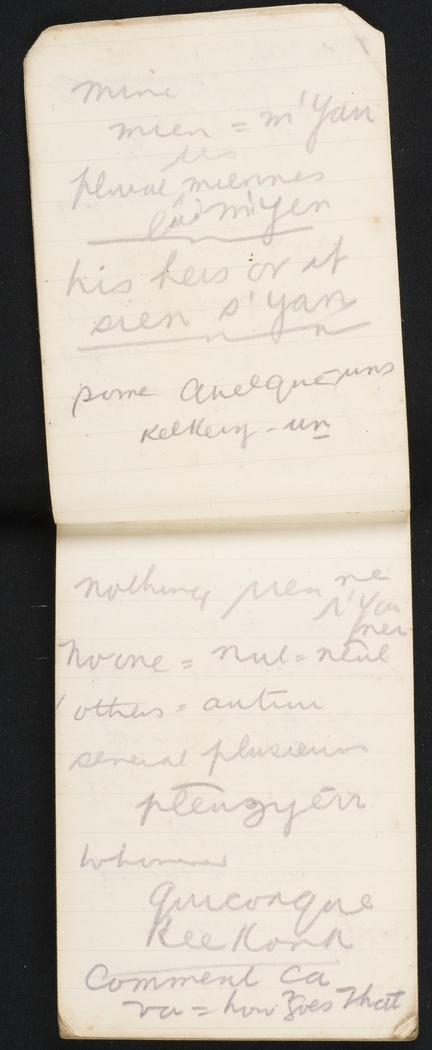 mine
mien = m'Yan
les
plural miennes
m'Yen
his hers or it
sien s'yan
some quelque-uns
Kelkery-un
nothing rien ne
r'Yan
ner
No one = nul = neul
others = autrui
several plusieurs
pleuzyerr
Whom
quiconque
Kee Konk
Comment ca
va = how goes that